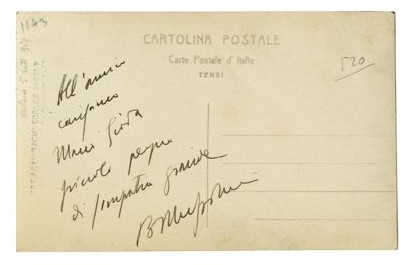 1173
CARTOLINA POSTALE
Carte Postale d' Italie
TENSI
520
All'amico
carissimo
Mario Gioda
piccolo pegno
di simpatia grande
BMussolini